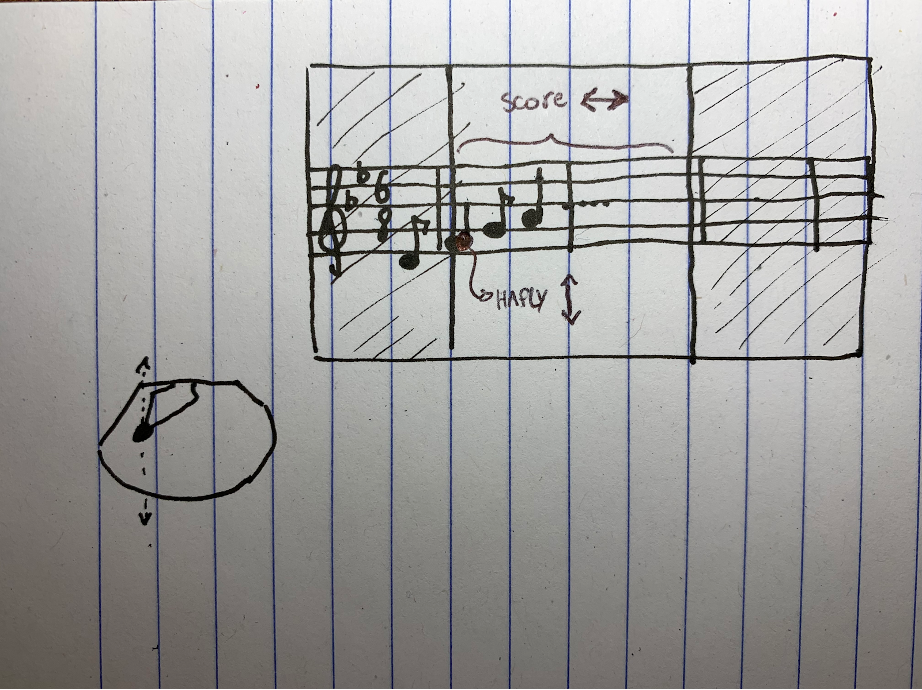 score ↔
♭ ♭ 6
8
HAPLY ↕